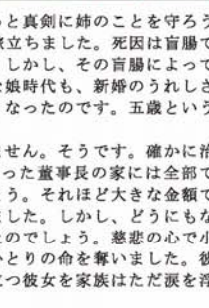 っと真剣に姉のことを守ろう
旅立ちました。死因は盲腸で
しかし、その盲腸によって
な娘時代も、新婚のうれしさ
なったのです。五歳という
ません。そうです。確かに治
った董事長の家には全部で
う。それほど大きな金額で
ました。しかし、どうにもな
のでしょう。慈悲の心で小
ひとりの命を奪いました。彼
つ彼女を家族はただ涙を浮